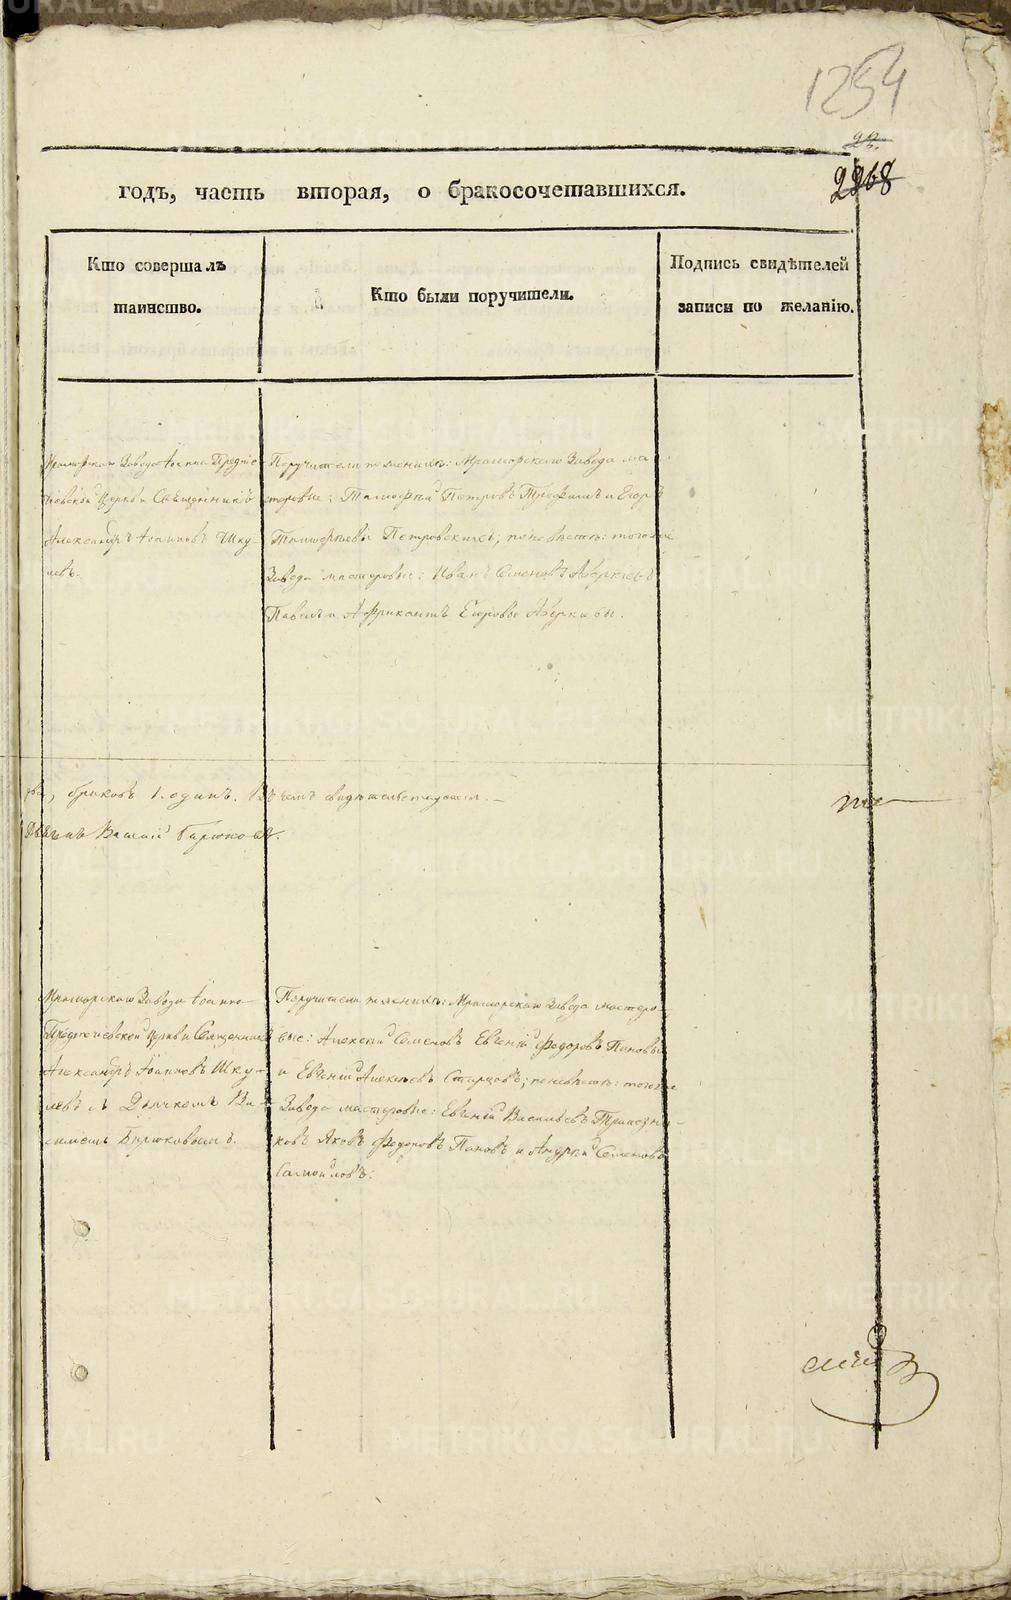 1254
22.
2268
годъ, часть вторая, о бракосочетавшихся.
Кто совершалъ
таинство.
Кто были поручители.
Подпись свидѣтелей
записи по желанію.
Мраморскаго Завода Іоанно Предте-
чевской Церкви Священникъ
Александръ Іоанновъ Шку-
левъ.
Поручители по женихѣ: Мраморскаго Завода ма-
стеровые: Тимофей Петровъ Трофимъ и Егоръ
Тимофеевы Петровскихъ, по невѣстѣ: тогоже
Завода мастеровые: Иванъ Семеновъ Аверкіевъ
Павелъ и Африкантъ Егоровы Аверкіевы.
браковъ 1. одинъ. Въ чемъ свидѣтельствуютъ.
Дьячекъ Василій Бирюковъ.
Мраморскаго Завода Іоанно-
Предтечевской Церкви Священникъ
Александръ Іоанновъ Шку-
левъ съ Дьячкомъ Ва-
силіемъ Бирюковымъ.
Поручители по женихѣ: Мраморскаго Завода мастеро-
вые: Алексѣй Семеновъ Евгеній Федоровъ Пановы
и Евгеній Алексѣевъ Старцовъ; по невѣстѣ: тогоже
Завода мастеровые: Евгеній Васильевъ Трапезни-
ковъ Яковъ Федоровъ Пановъ и Андрей Семеновъ
Самойловъ.
METRIKI.GASO-URAL.RU